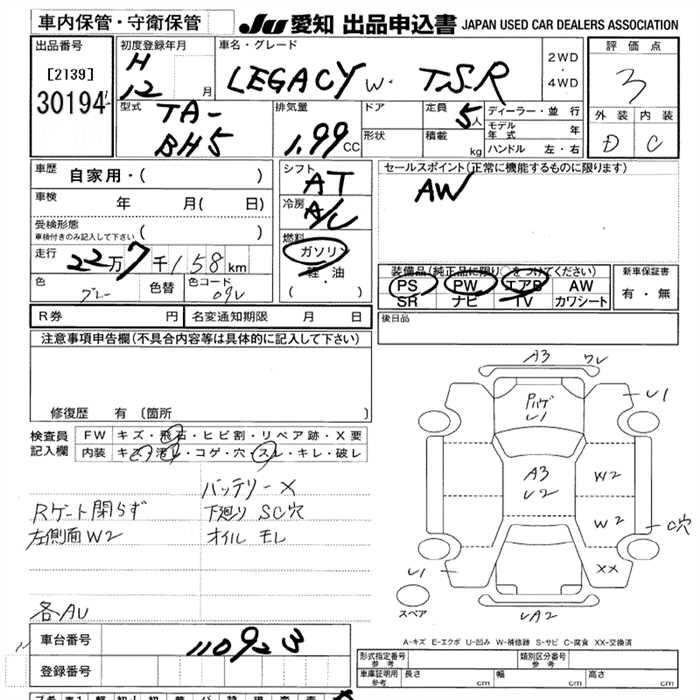 車内保管・守衛保管
JU 愛知 出品申込書 JAPAN USED CAR DEALERS ASSOCIATION
出品番号
[2139]
30194
初度登録年月
H
12 月
車名・グレード
LEGACY W. TSR
2WD
・
4WD
評価点
3
外装 内装
D C
型式
TA-
BH5
排気量
1.99 CC
ドア
形状
定員 5人
積載 kg
ディーラー・並行
モデル年式 年
ハンドル 左・右
車歴
自家用・( )
車検 年 月( 日)
受検形態
車検付きのみ記入して下さい ( )
走行
22万7千158km
色
グレー
色替
色コード
シフト
AT
冷房
A/C
燃料
ガソリン
・
軽油
( )
セールスポイント(正常に機能するものに限ります)
AW
装備品(純正品に限り○をつけてください)
PS PW エアB AW
SR ナビ TV カワシート
新車保証書
有・無
R券 円
名変通知期限 月 日
後日品
注意事項申告欄(不具合内容等は具体的に記入して下さい)
修復歴 有 〔箇所 〕
検査員
記入欄
FW キズ・飛石・ヒビ割・リペア跡・X要
内装 キズ・汚レ・コゲ・穴・スレ・キレ・破レ
バッテリーX
Rゲート閉らず
下廻り SC穴
左側面W2
オイルモレ
各AU
A3
ワレ
U1
A3
U2
U1
W2
W2
C穴
XX
U1
UA2
スペア
A-キズ E-エクボ U-凹み W-補修跡 S-サビ C-腐食 XX-交換済
車台番号
110923
登録番号
形式指定番号
参考
類別区分番号
参考
車庫証明用
参考
長さ cm
幅 cm
高さ cm